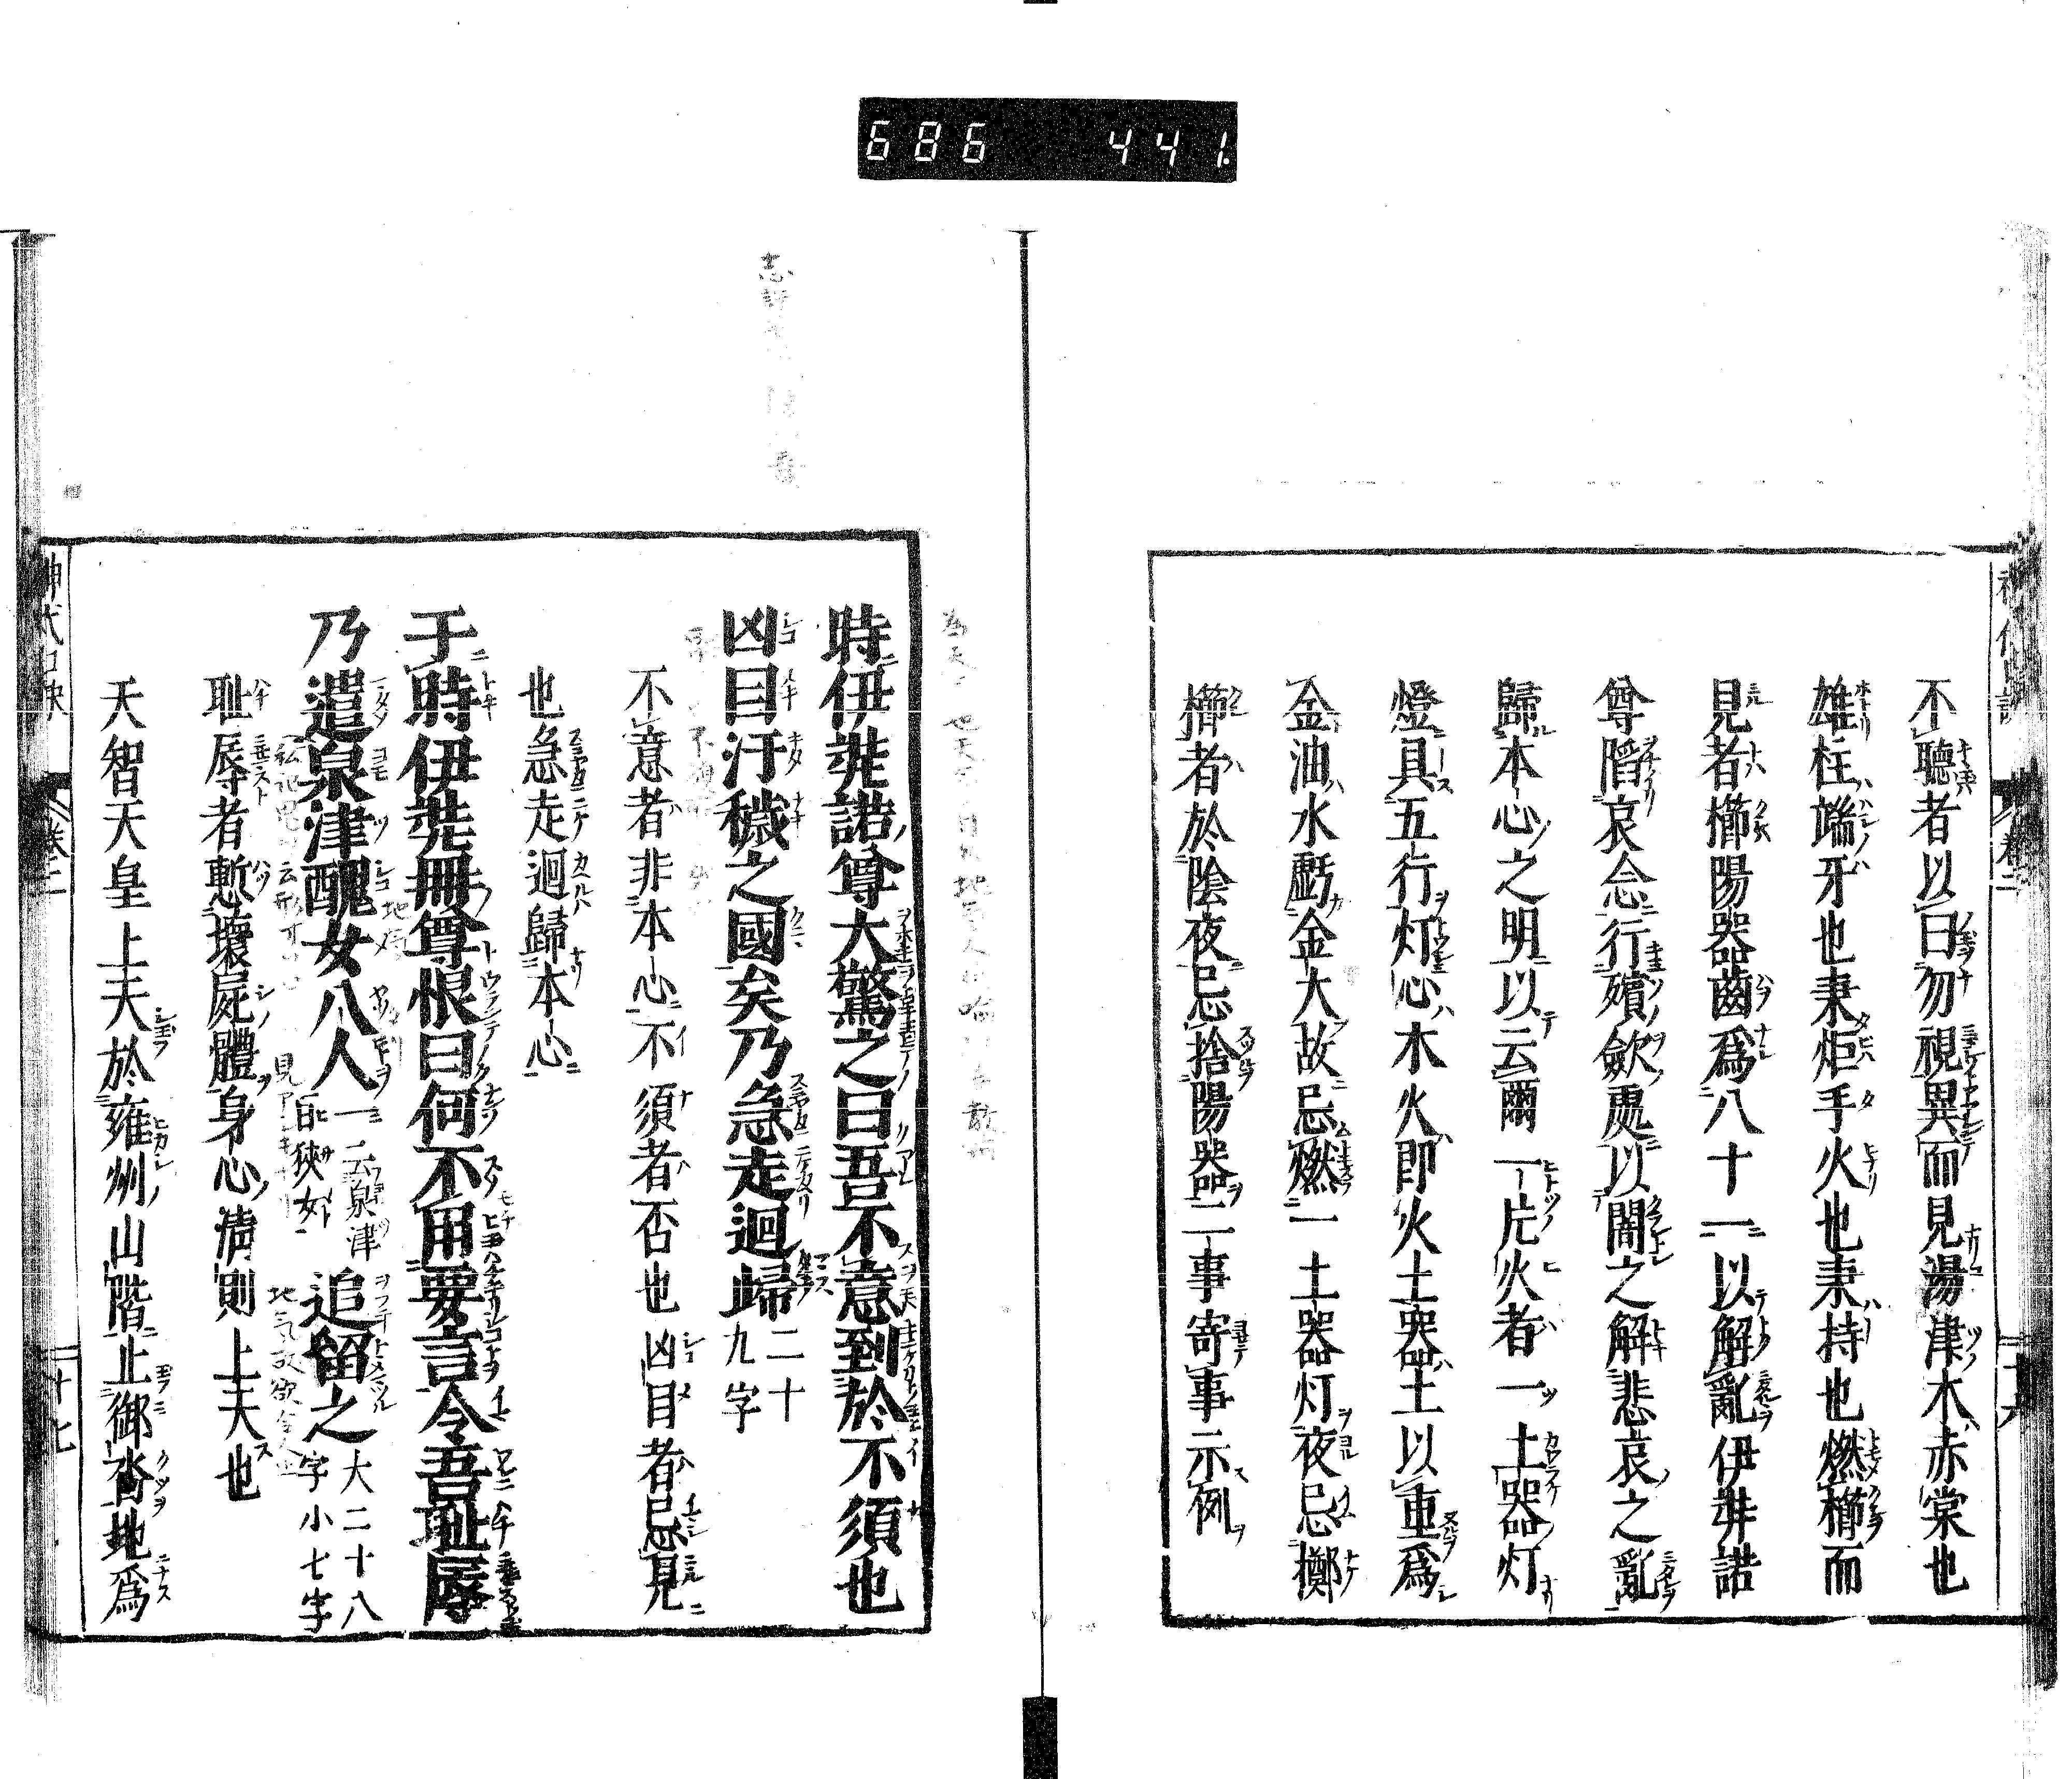 686 441.
不聽者以曰勿視異而見湯津木赤棠也
雄柱端牙也秉炬手火也秉持也燃櫛而
見者櫛陽器齒爲八十一以解亂伊弉諾
尊陷哀念行殯歛處以闇之解悲哀之亂
歸本心之明以云爾一片火者一土器灯
燈具五行灯心木火即火土器土以重爲
金油水虧金大故忌燃一土器灯夜忌擲
櫛者於陰夜忌捨陽器二事寄事示例
時伊弉諾尊大驚之曰吾不意到於不須也
凶目汙穢之國矣乃急走迴歸二十九字
不意者非本心不須者否也凶目者忌見
也急走迴歸本心
于時伊弉冊尊恨曰何不用要言令吾耻辱
乃遣泉津醜女八人一云泉津日狹女追留之大二十八字小七字
耻辱者慙壞屍體身心清則上天也
天智天皇上天於雍州山階止御沓地爲
十七